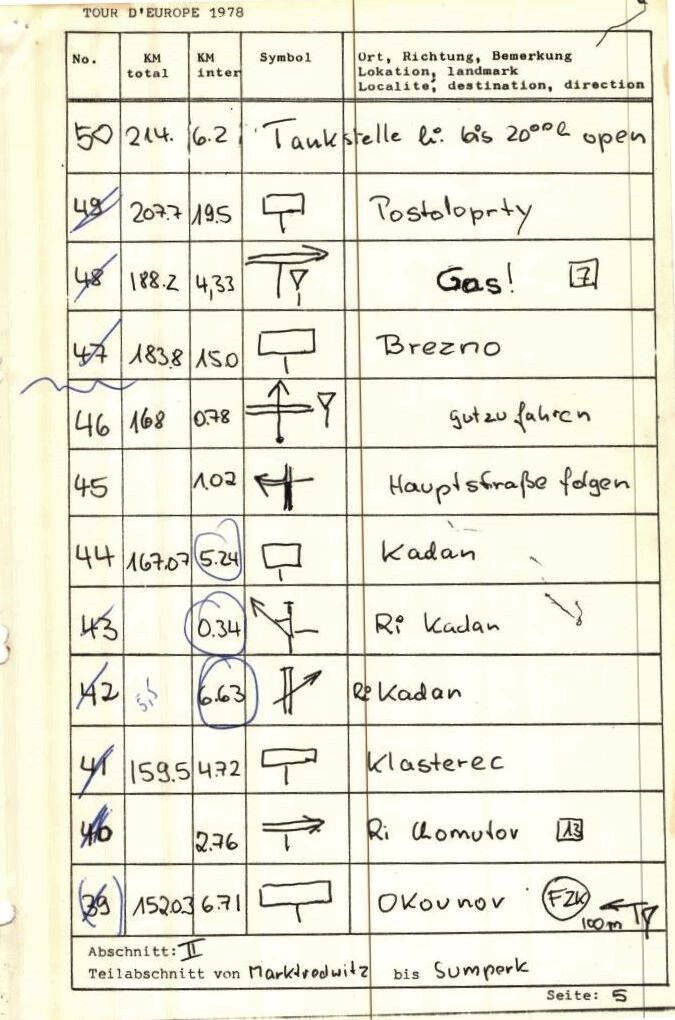 TOUR D'EUROPE 1978
No. KM total KM inter Symbol Ort, Richtung, Bemerkung
Lokation, landmark
Localite, destination, direction
50 214. 6.2 Tankstelle li. bis 20ooh open
49 207.7 19.5 Postoloprty
48 188.2 4,33 Gas! 7
47 183.8 15.0 Brezno
46 168 0.78 gut zu fahren
45 1.02 Hauptstraße folgen
44 167.07 5.24 Kadan
43 0.34 Ri Kadan
42 5,5 6.63 Ri Kadan
41 159.5 4.72 Klasterec
40 2.76 Ri Chomutov 13
39 152.03 6.71 Okounov FZK 100m
Abschnitt: II
Teilabschnitt von Marktredwitz bis Sumperk
Seite: 5